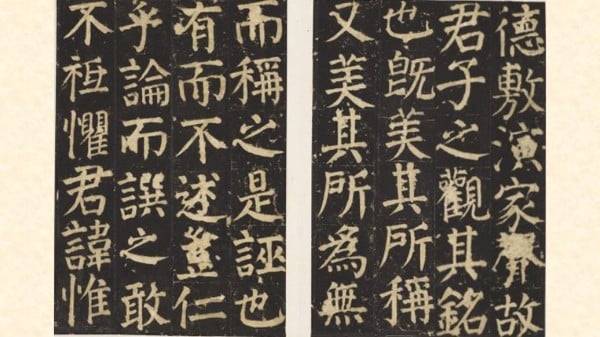 德敷演家聲故
君子之觀其銘
也旣美其所稱
又美其所為無
而稱之是誣也
有而不述豈仁
乎論而譔之敢
不祗懼君諱惟